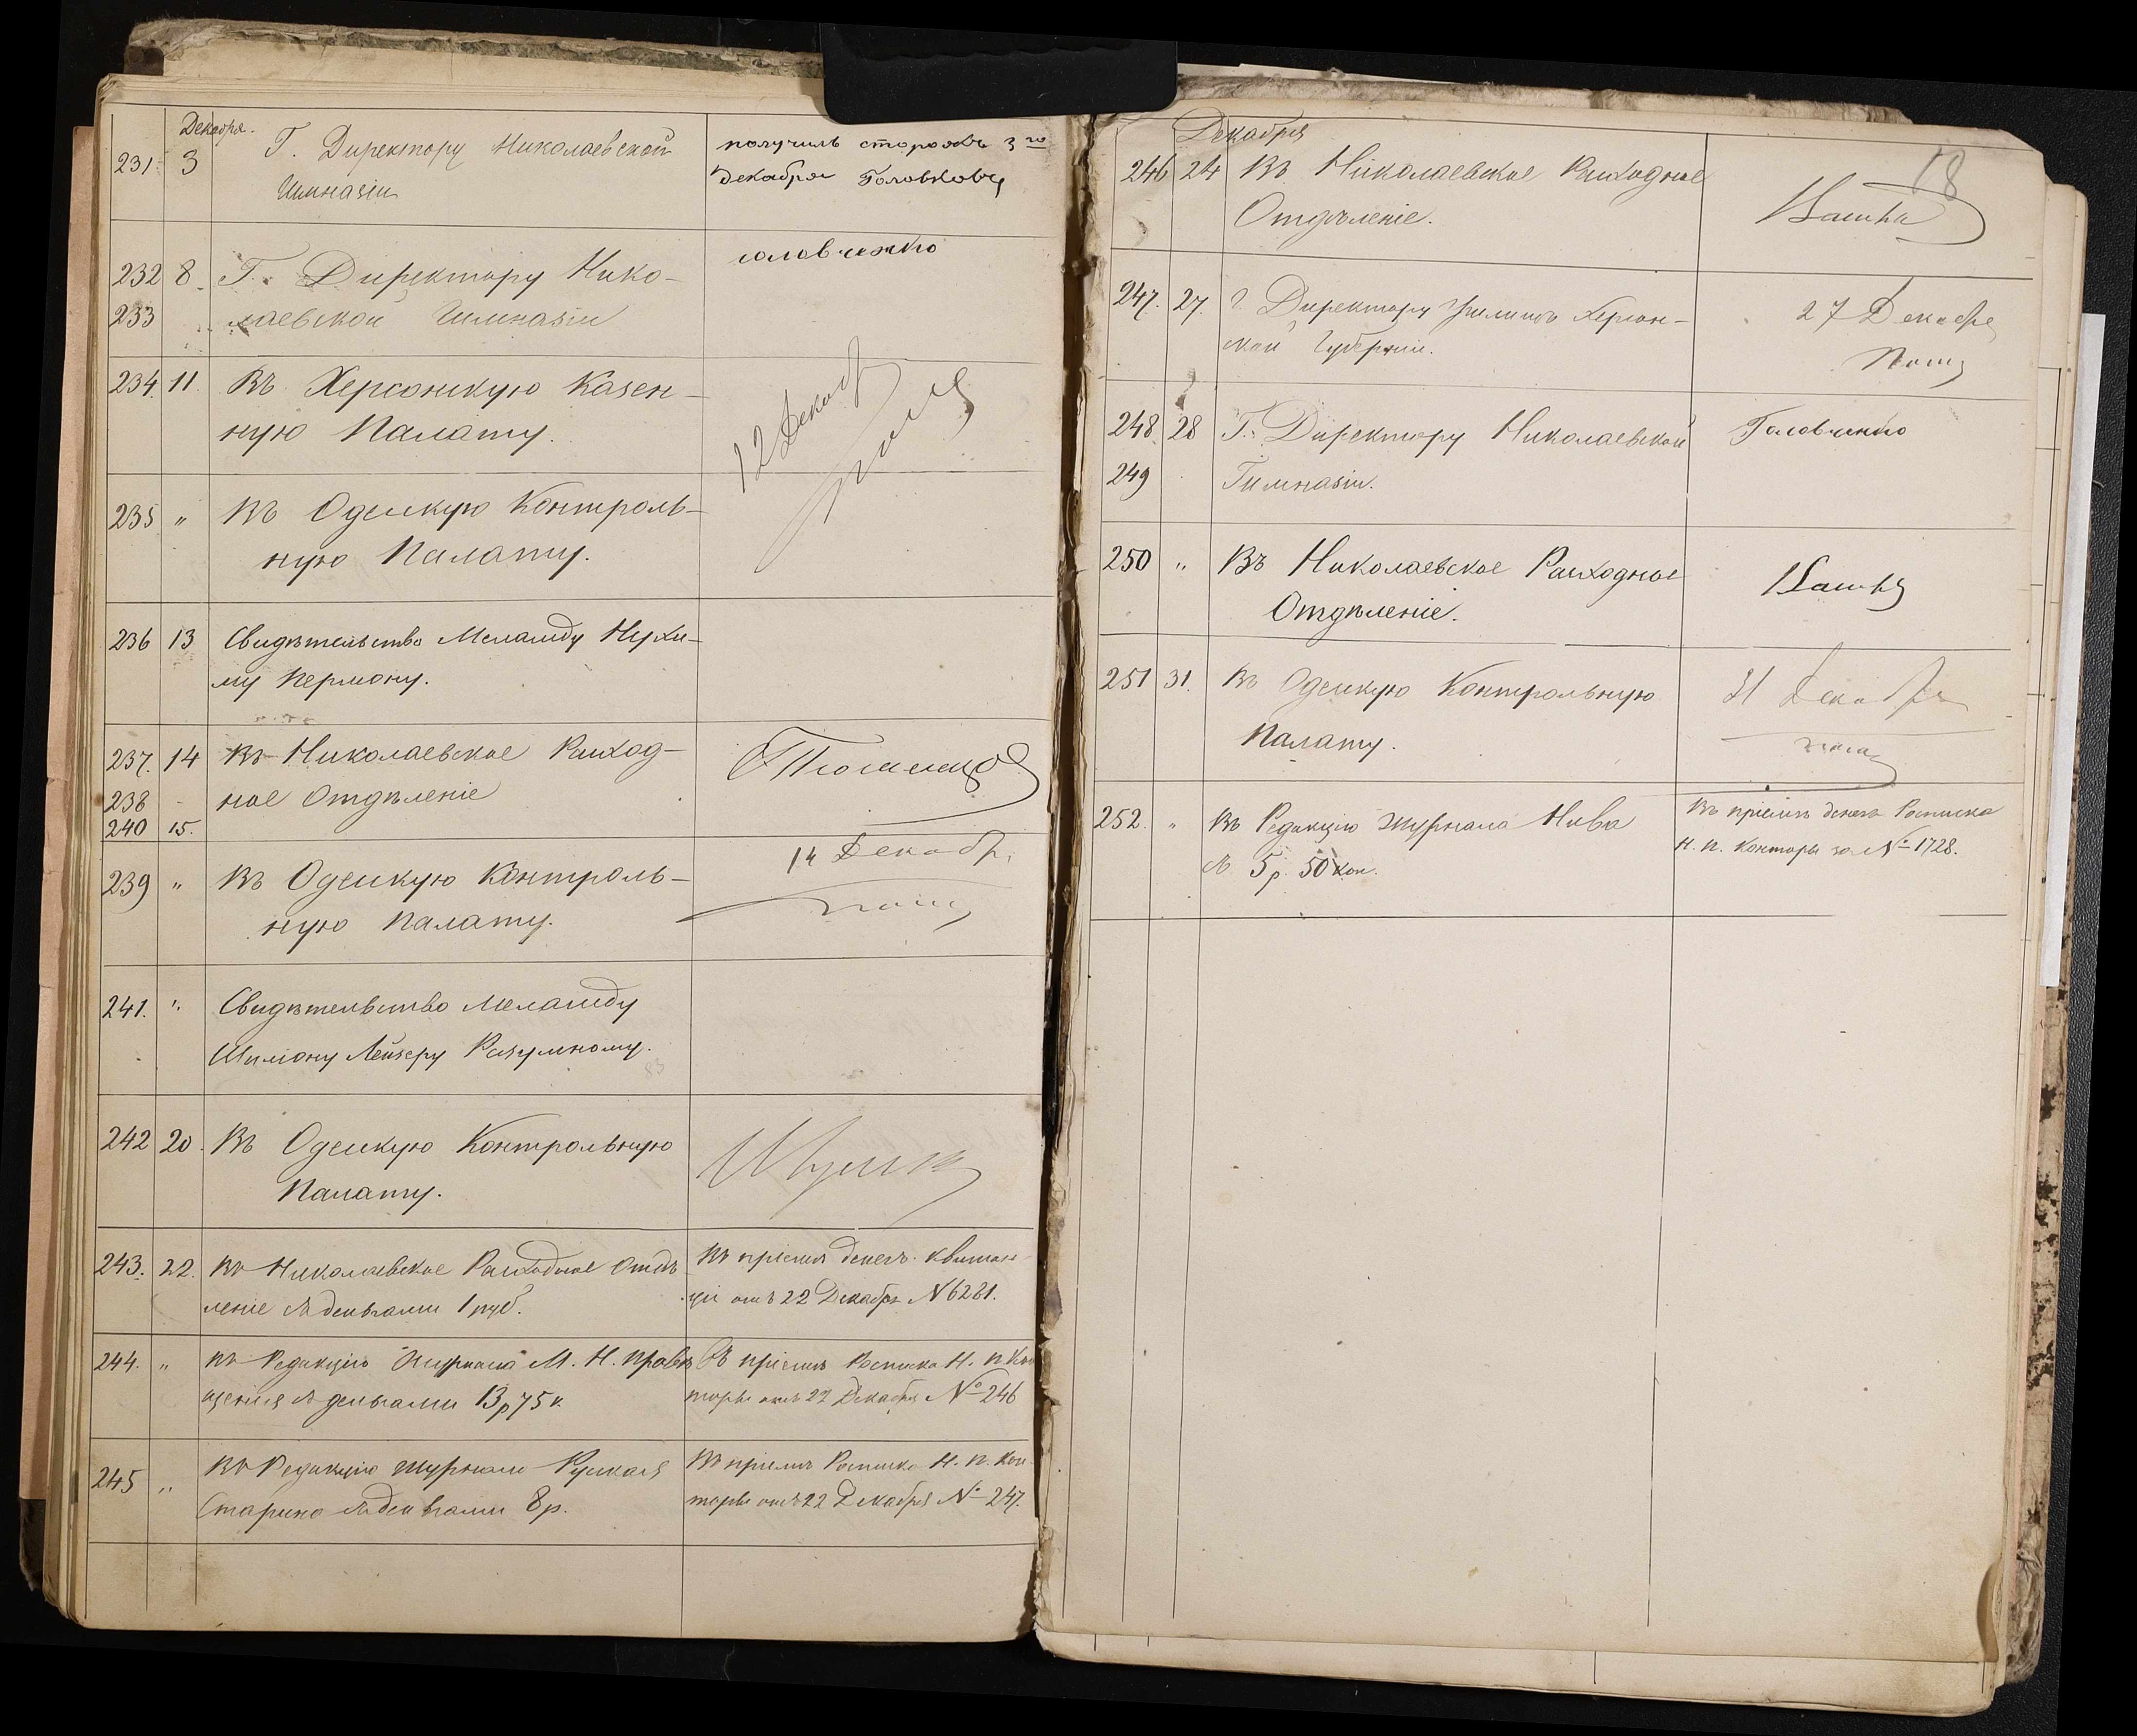 Декабря.
231 3 Г. Директору Николаевской
Гимназіи
получилъ сторожъ 3го
Декабря
232 8 Г. Директору Нико-
233 лаевской Гимназіи
головченко
234. 11. Въ Херсонскую Казен-
ную Палату.
12 Декабр
235 „ Въ Одесскую Контроль-
ную Палату.
236 13 Свидѣтельство Меламду Нухи-
му Перману.
237. 14 Въ Николаевское Расход-
238 ное Отдѣленіе
240 15.
14 Декабр.
239 „ Въ Одесскую Контроль-
ную Палату.
241. „ Свидѣтельство Меламду
Шимону Лейзеру Разумному.
242 20. Въ Одесскую Контрольную
Палату.
243. 22. Въ Николаевское Расходное Отдѣ
леніе съ деньгами 1 руб.
Въ пріемѣ денегъ квитан
ція отъ 22 Декабря № 6281.
244. „ Въ Редакцію Журнала М. Н. Просвѣ
щенія съ деньгами 13 р 75 к.
Въ пріемѣ Росписка Н. П. Кон
торы отъ 22 Декабря № 246
245 „ Въ Редакцію журнала Русская
Старина съ деньгами 8 р.
Въ пріемѣ Росписка Н. П. Кон
торы отъ 22 Декабря № 247.
18
Декабря
246 24 Въ Николаевское Расходное
Отдѣленіе.
247. 27. Г Директору Училищъ Херсон-
ской Губерніи.
27 Декабря
248. 28 Г. Директору Николаевской
249 Гимназіи.
Головченко
250 „ Въ Николаевское Расходное
Отдѣленіе.
251 31. Въ Одесскую Контрольную
Палату.
31 Декабря
252. „ Въ Редакцію журнала Нива
съ 5 р. 50 коп.
Въ пріемѣ денегъ Росписка
Н. П. Конторы за № 1728.